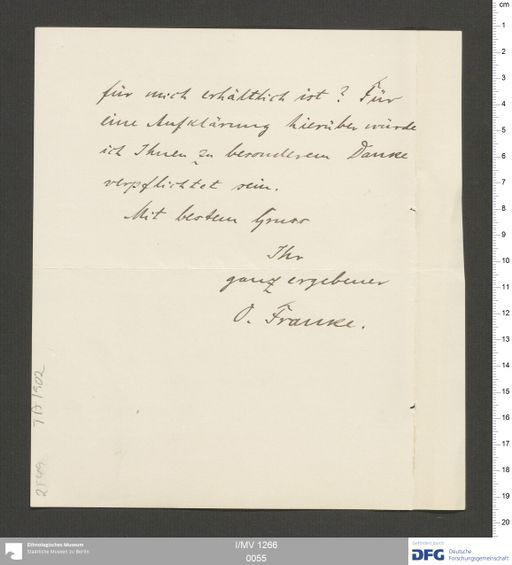 für mich erhältlich ist? Für
eine Aufklärung hierüber würde
ich Ihnen zu besonderem Danke
verpflichtet sein.
Mit bestem Gruss
Ihr
ganz ergebener
O. Franke.
1902
Ethnologisches Museum
Staatliche Museen zu Berlin
I/MV 1266
0055
Gefördert durch
DFG
Deutsche
Forschungsgemeinschaft
cm
1
2
3
4
5
6
7
8
9
10
11
12
13
14
15
16
17
18
19
20